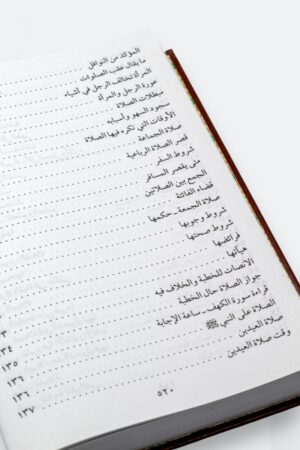 المؤكد من النوافل
ما يقال عقب الصلوات
المرأة تخالف الرجل في أشياء
عورة الرجل والمرأة
مبطلات الصلاة
سجود السهو وأسبابه
الأوقات التي تكره فيها الصلاة
صلاة الجماعة
قصر الصلاة الرباعية
شروط السفر
متى يقصر المسافر
الجمع بين الصلاتين
قضاء الفائتة
صلاة الجمعة ـ حكمها
شروط وجوبها
شروط صحتها
فرائضها
هيآتها
الانصات للخطبة والخلاف فيه
جواز الصلاة حال الخطبة
قراءة سورة الكهف ـ ساعة الإجابة ١٣٥
الصلاة على النبي ﷺ ١٣٦
صلاة العيدين ١٣٦
وقت صلاة العيدين ١٣٧
٥٢٠